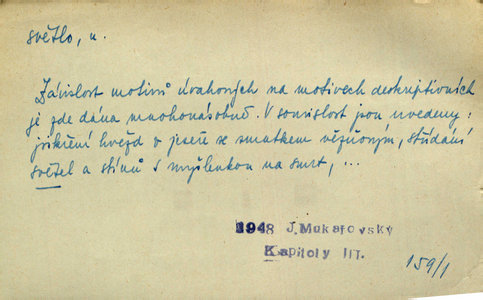 světlo, n.
Závislost motivů úvahových na motivech deskriptivních
je zde dána mnohonásobně. V souvislost jsou uvedeny:
jiskření hvězd v jezeře se smutkem vězňovým, střídání
světel a stínů s myšlenkou na smrt, ...
1948 J. Mukařovský
Kapitoly III.
159/1